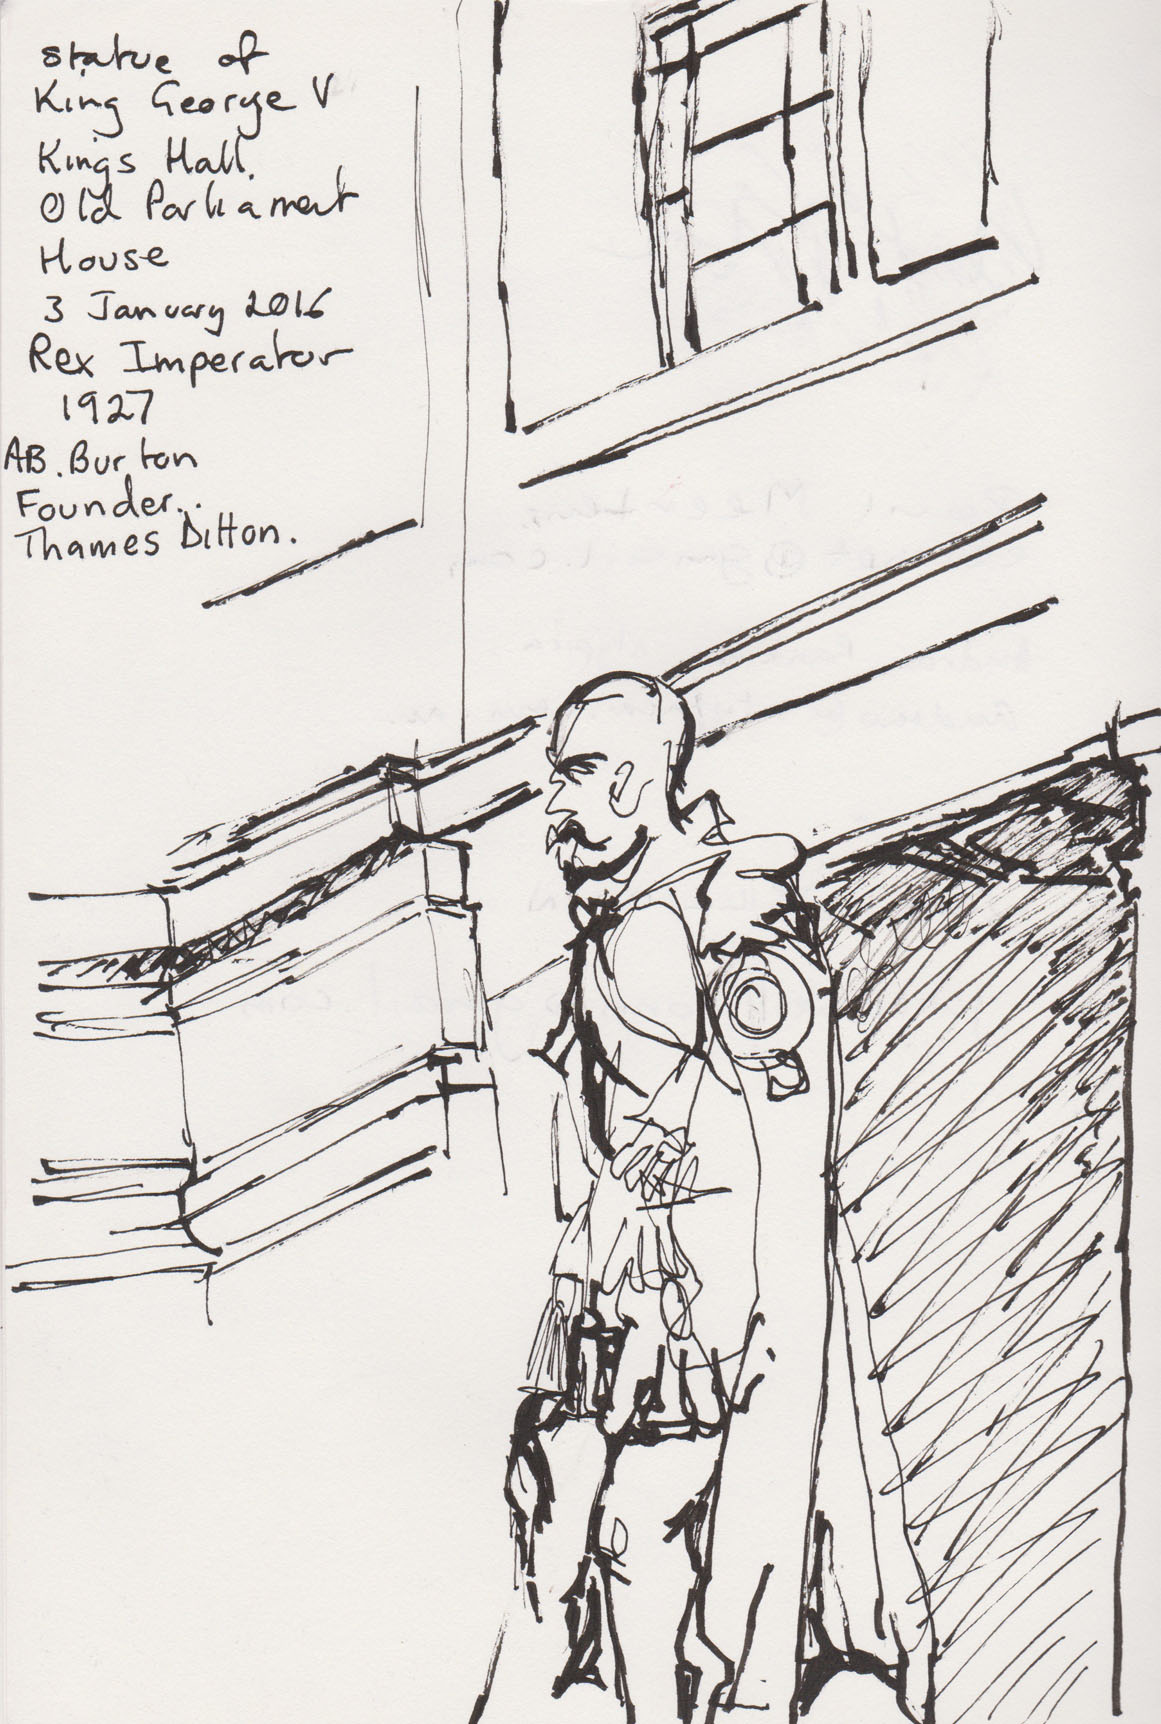 statue of
King George V
Kings Hall.
Old Parliament
House
3 January 2016
Rex Imperator
1927
AB. Burton
Founder..
Thames Ditton.